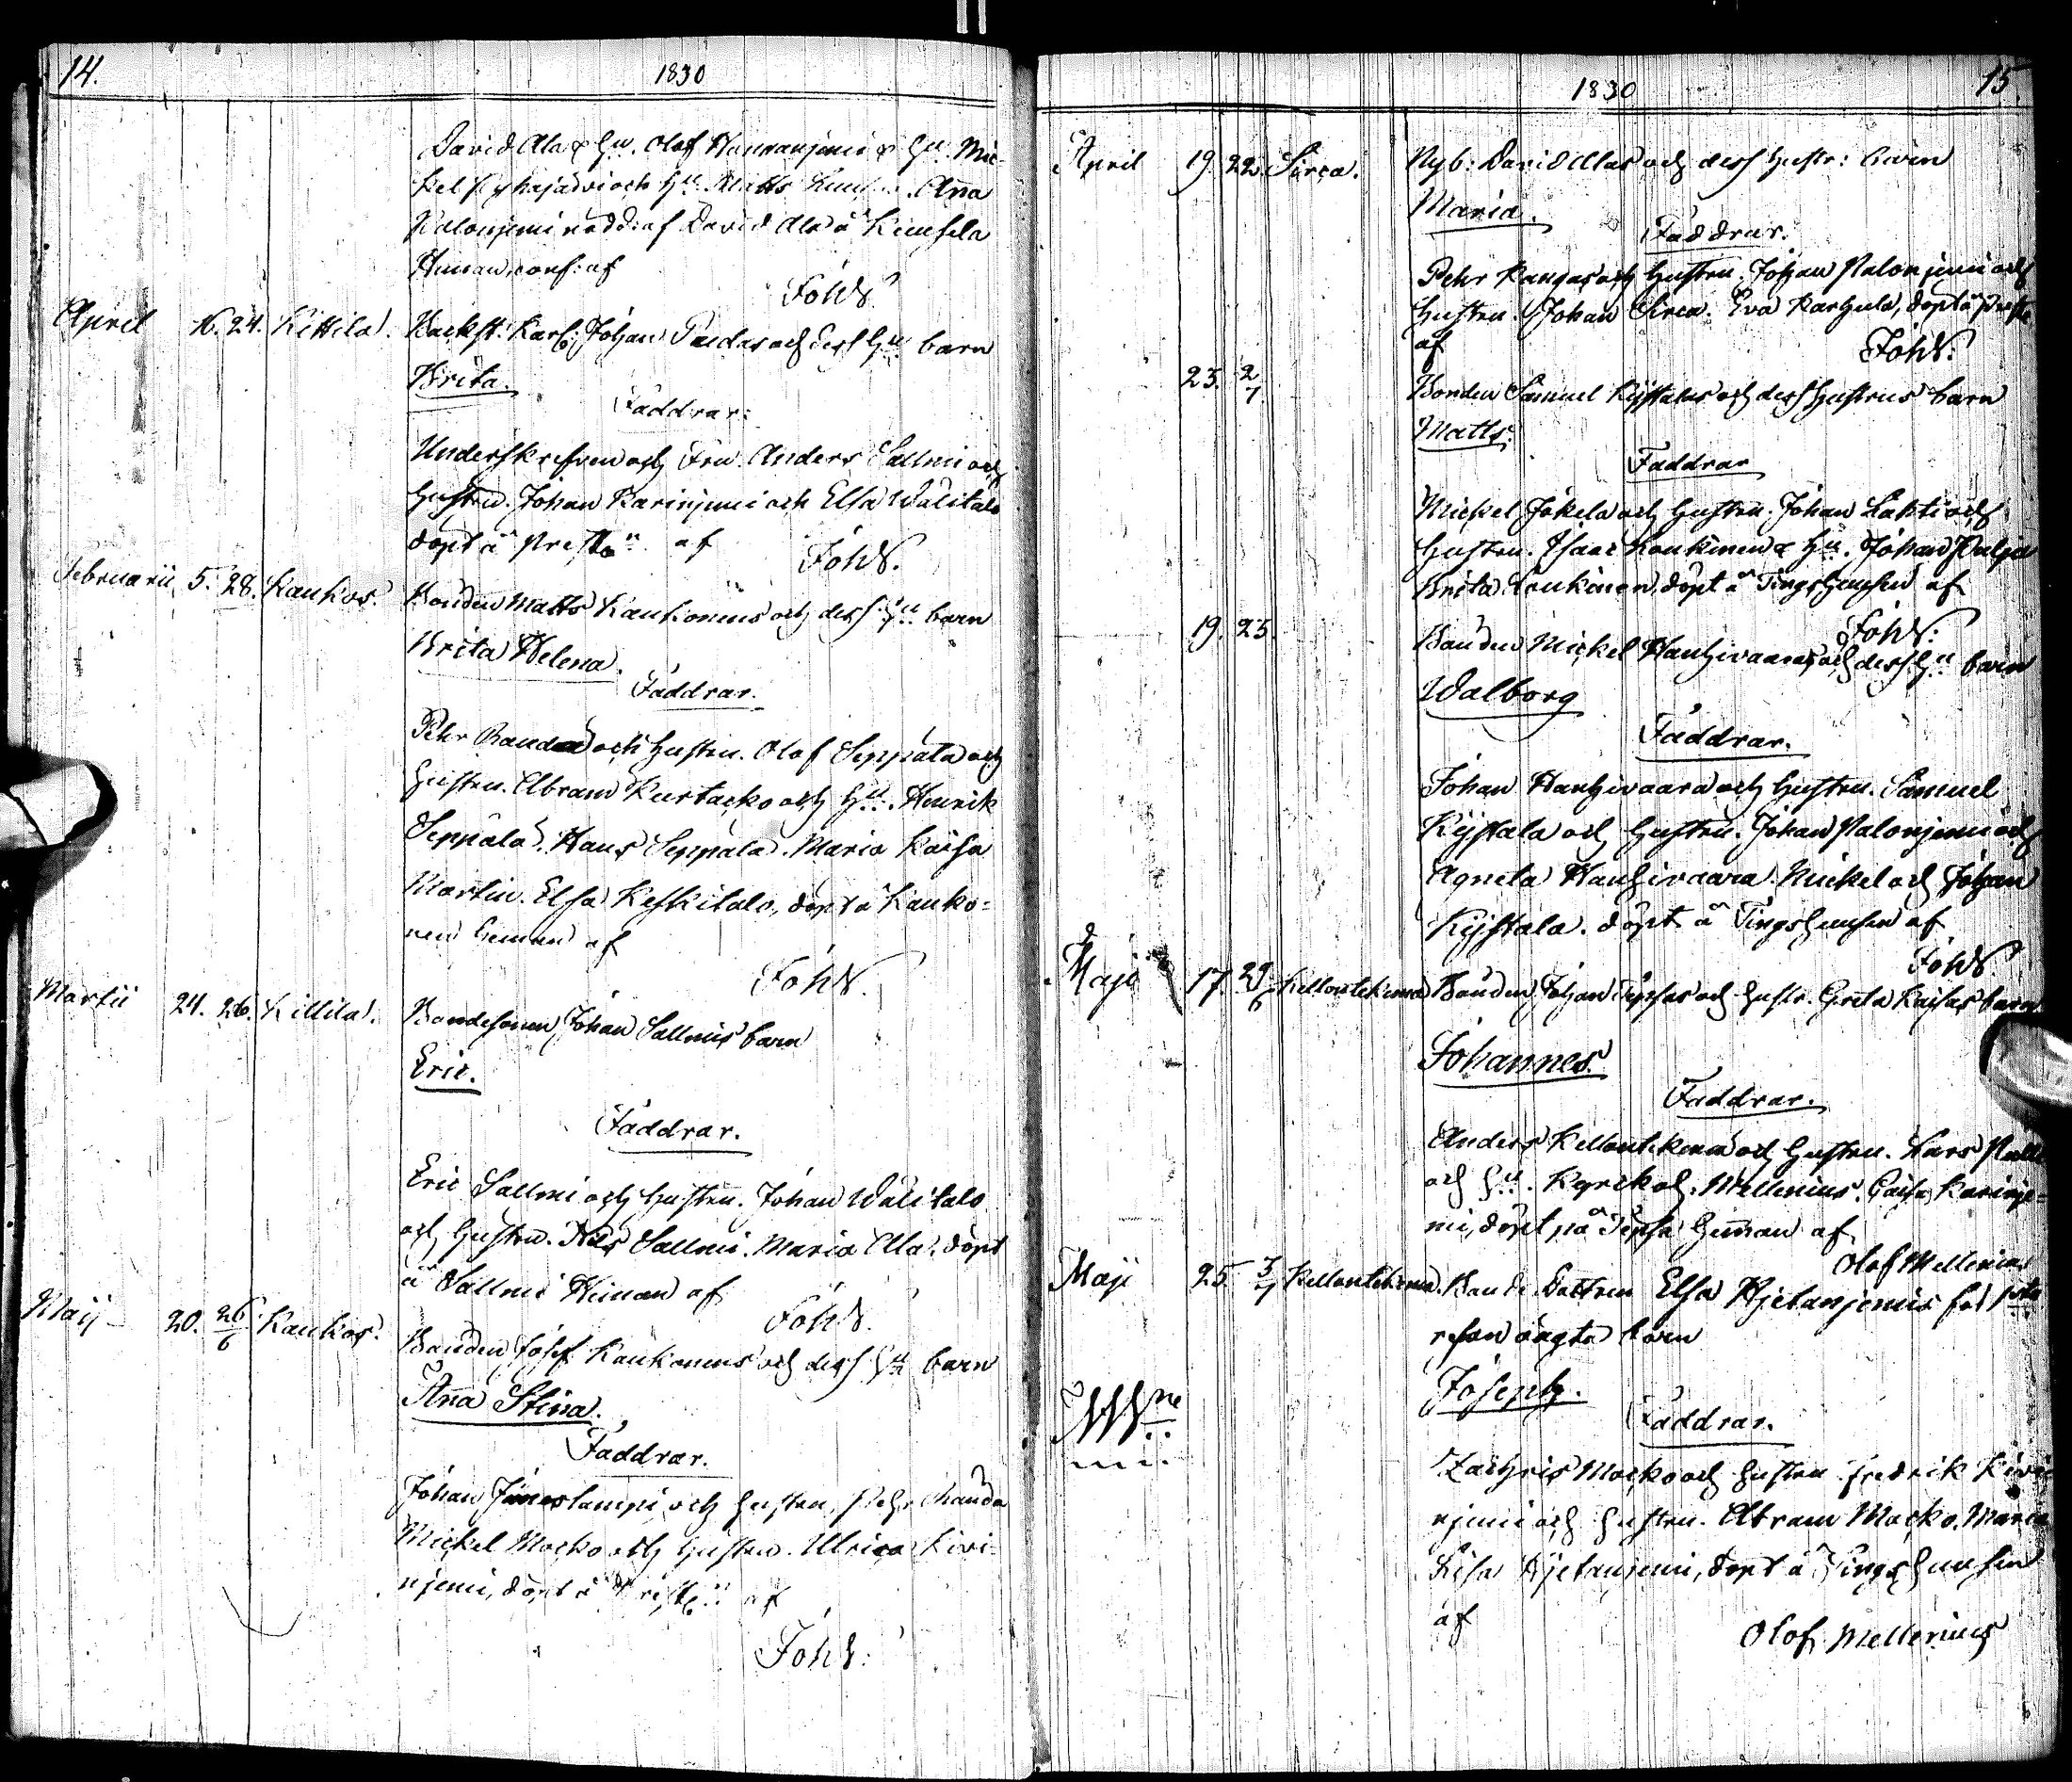 14.
1830
David Ala & Hu. Olof Hannanjemi & Hu. Mic-
kel och Hu. Matts Anna
Palonjemi nöddöpt af David Ala å Kinisela
Heman, conf: af
FöhN.
April 16. 24. Kittila. Backst. Karl: Johan Pandas och dess Hu barn
Brita.
Faddrar:
Underskrefven och Fru. Anders Sallmi och
Hustru. Johan Karinjemi och Elsa Wälitalo
döpt å Preste af FöhN.
Februarii 5. 28. Kaukos. Bonden Matts Kaukonens och dess Hu barn
Brita Helena.
Faddrar.
Pehr Rauda och Hustru. Olof Seppälä och
Hustru. Abram Kurtacko och Hu. Henrik
Seppälä. Hans Seppälä. Maria Kaisa
Martin. Elsa Keskitalo, döpt å Kauko-
nen heman af
FöhN.
Martii 24. 26. Kittila. Bondesonen Johan Sallmis barn
Eric.
Faddrar.
Eric Sallmi och Hustru. Johan Wälitalo
och Hustru. Nils Sallmi. Maria Ala. döpt
å Sallmi Heman af
FöhN.
Maij 20. 26/6 Kaukos. Bonden Josef Kaukonens och dess Hu barn
Anna Stina.
Faddrar.
Johan Jäneslampi och Hustru, Pehr Rauda
Mickel Mocko och Hustru. Ulrica Kivi-
njemi, döpt å Preste af
FöhN.
1830
15.
April 19. 22. Sirca. Nyb: David Alas och dess Hustr: barn
Maria.
Faddrar:
Pehr Kangas och Hustru. Johan Palonjemi och
Hustru. Johan Sirca. Eva Karhula, döpt å Preste
af FöhN.
23. 2/7 Bonden Samuel Kystalas och dess Hustrus barn
Matts.
Faddrar
Mickel Jokela och Hustru. Johan Lahti och
Hustru. Isaac Koukinen & Hu. Johan Palja
Brita Koukinen, döpt å Tingshusen af
FöhN:
19. 25. Bonden Mickel Hanhivaaras och dess Hu barn
Walborg
Faddrar.
Johan Hanhivaara och Hustru. Samuel
Kystala och Hustru. Johan Palonjemi och
Agneta Hanhivaara. Mickel och Johan
Kystala. döpt å Tingshusen af
FöhN
Maji 17. 29/6 Kellontekema Bonden Johan Tepsas och Hustr. Greta Kaisas barn
Johannes.
Faddrar.
Anders Kellontekema och Hustru. Lars Palla
och Hu. Kyrkoh. Mellenius. Caisa Karinje-
mi, döpt på Tepsa Heman af
Olof Mellenius
Maji 25. 3/7 Kellontekema. Bonde Dottren Elsa Hjetanjemis
oägta barn
Joseph.
Faddrar.
Zachris Mocko och Hustru. Fredrik Kivi
njemi och Hustru. Abram Mocko. Maria
Lisa Hjetanjemi, döpt å Tingshusen
af Olof Mellenius